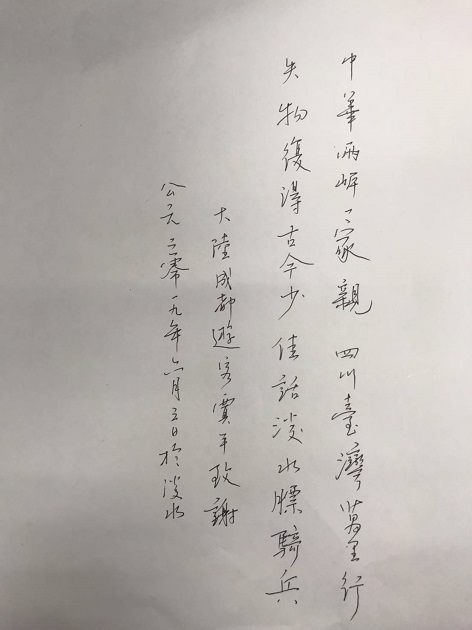 中華兩岸一家親 四川臺灣萬里行
失物復得古今少 佳話淡水膘騎兵
大陸成都遊客賈平致謝
公元二零一九年六月五日於淡水